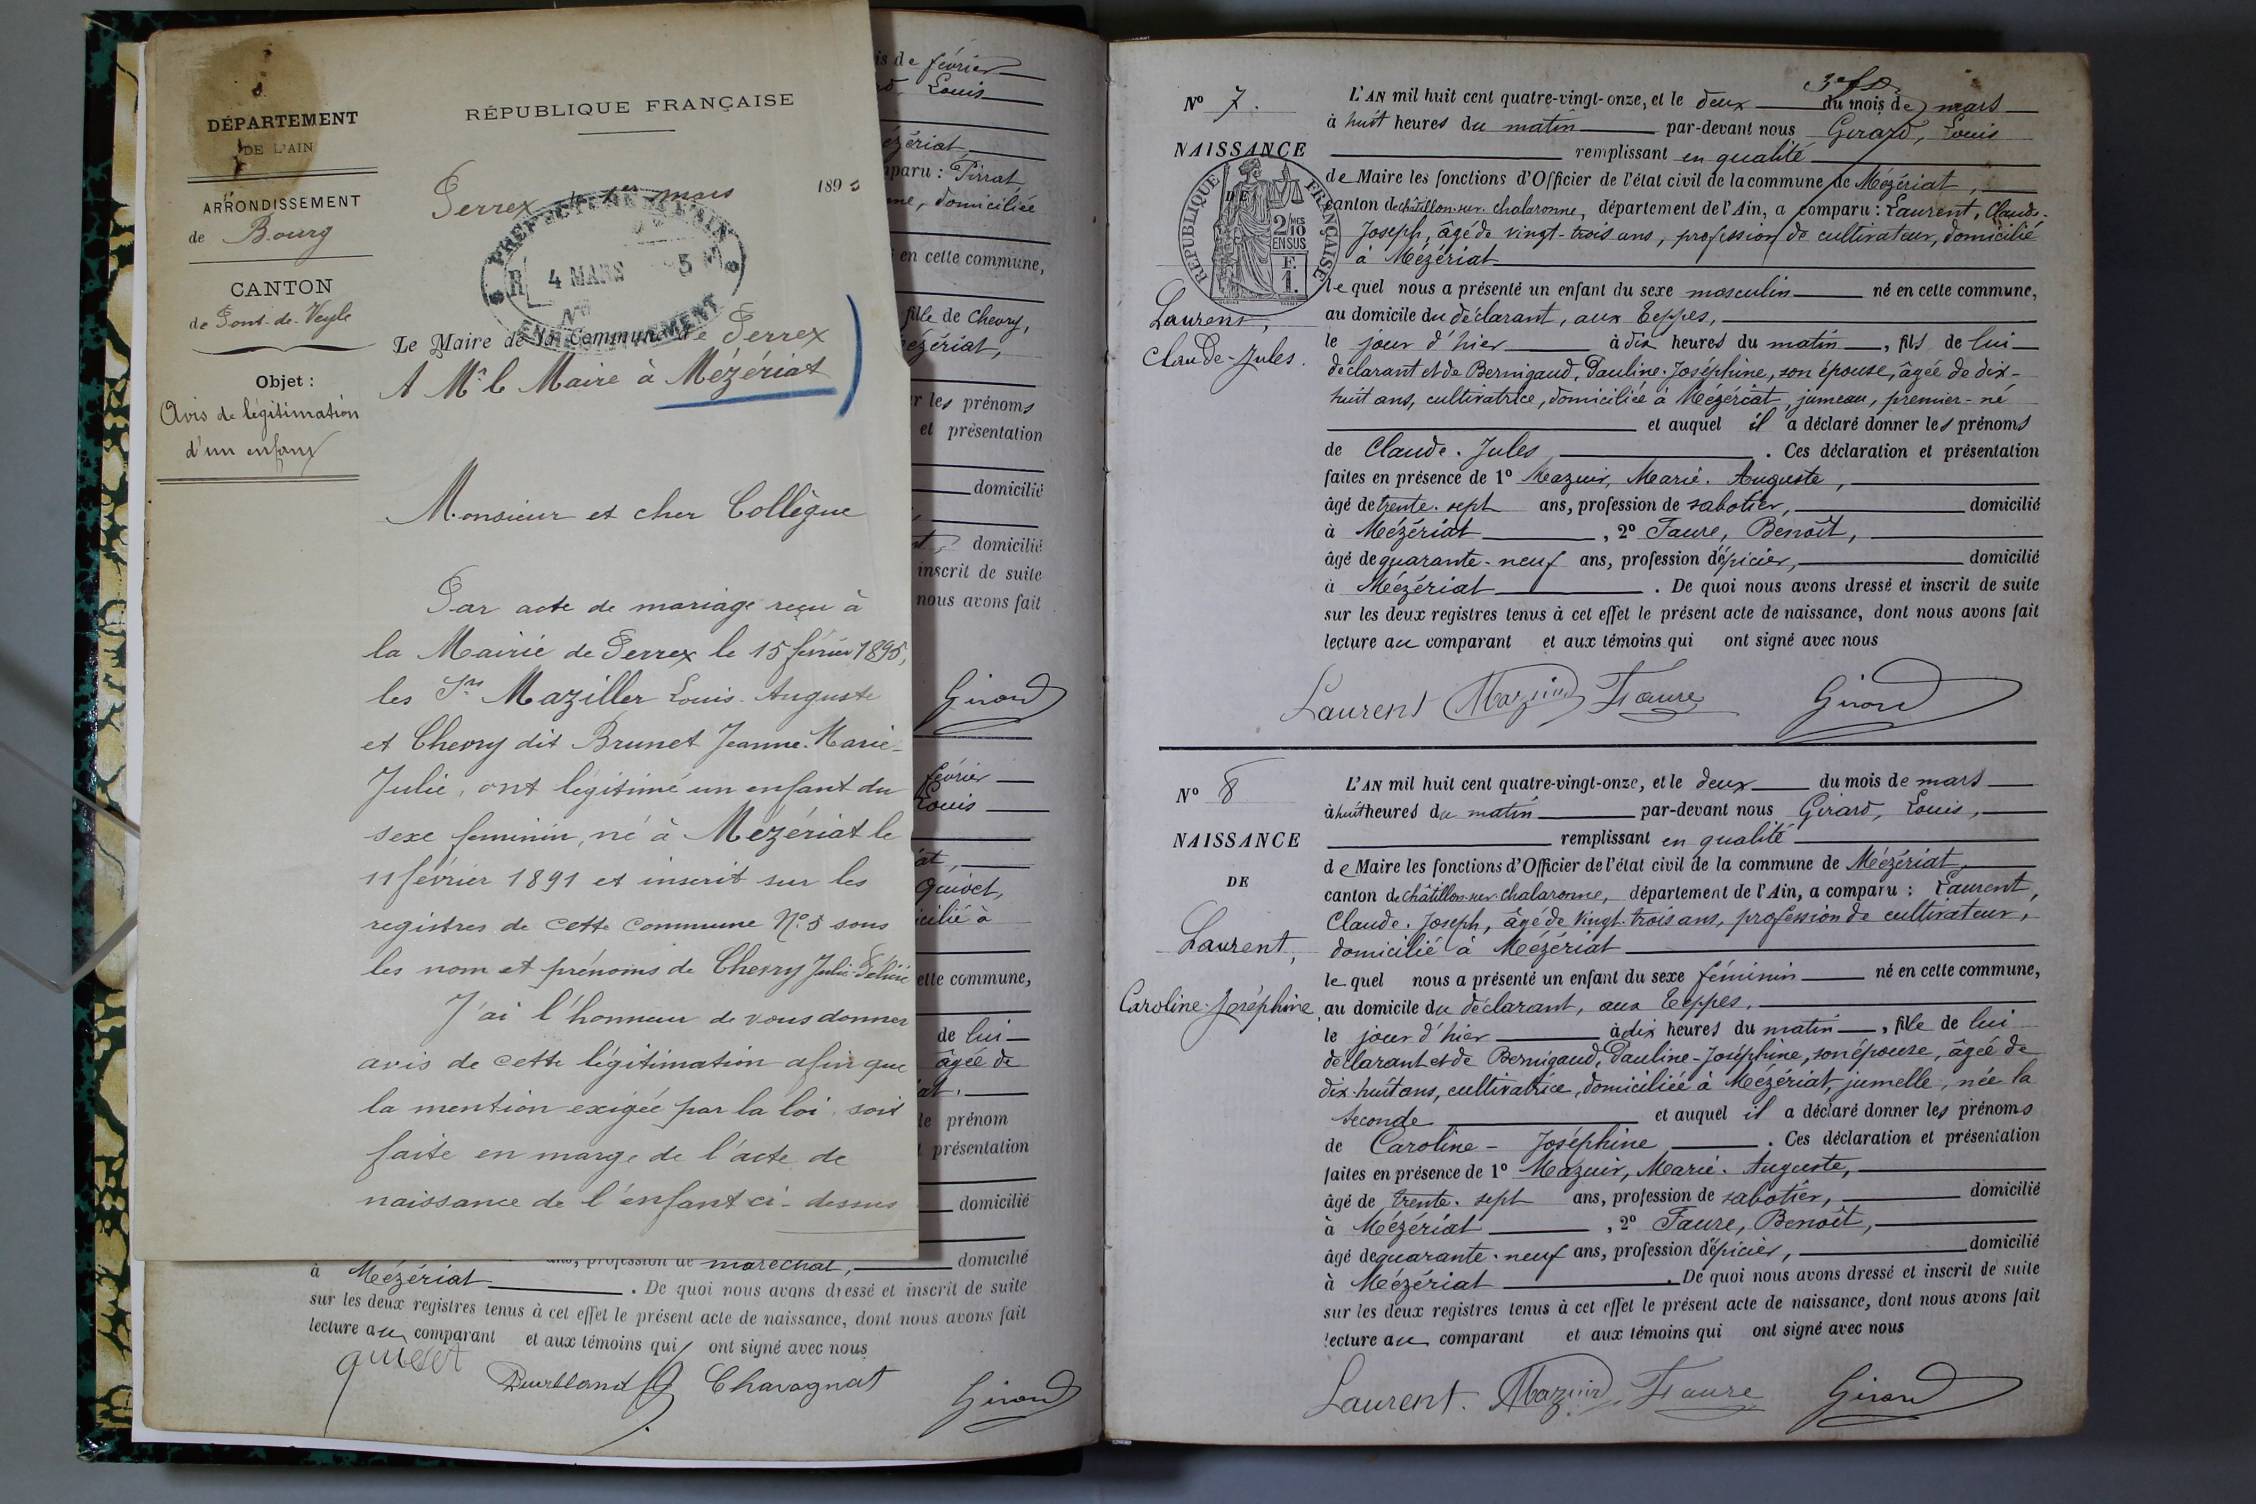 DÉPARTEMENT
DE L'AIN
ARRONDISSEMENT
de Bourg
CANTON
de Pont-de-Veyle
Objet :
Avis de légitimation
d'un enfant
RÉPUBLIQUE FRANÇAISE
Perrex le 1er mars 1895
PRÉFECTURE DE L'AIN
4 MARS
ENREGISTREMENT
Le Maire de la Commune de Perrex
A Mr le Maire à Mézériat
Monsieur et cher Collègue
Par acte de mariage reçu à
la Mairie de Perrex le 15 février 1895,
les Srs Maziller Louis-Auguste
et Chevry dit Brunet Jeanne-Marie-
Julie, ont légitimé un enfant du
sexe feminin, né à Mézériat le
11 février 1891 et inscrit sur les
registres de cette commune No 5 sous
les nom et prénoms de Chevry Julie-Félicie
J'ai l'honneur de vous donner
avis de cette légitimation afin que
la mention exigée par la loi soit
faite en marge de l'acte de
naissance de l'enfant ci-dessus
is de février
Louis
ézériat
paru : Pirrat
domiciliée
en cette commune,
fille de Chevry,
ézériat,
les prénoms
et présentation
domicilié
domicilié
inscrit de suite
nous avons fait
Girard
février
Louis
at,
Quivet,
icilié à
ette commune,
de lui
âgée de
at.
le prénom
présentation
domicilié
ans, profession de maréchal, domicilié
à Mézériat. De quoi nous avons dressé et inscrit de suite
sur les deux registres tenus à cet effet le présent acte de naissance, dont nous avons fait
lecture au comparant et aux témoins qui ont signé avec nous
quivet
Chavagnat
Girard
No 7.
NAISSANCE
DE
RÉPUBLIQUE FRANÇAISE
2/10 MES
EN SUS
F.
1.
Laurent,
Claude-Jules.
L'AN mil huit cent quatre-vingt-onze, et le deux du mois de mars
à huit heures du matin par-devant nous Girard, Louis
remplissant en qualité
de Maire les fonctions d'Officier de l'état civil de la commune de Mézériat,
canton de Châtillon-sur-Chalaronne, département de l'Ain, a comparu : Laurent, Claude-
Joseph, âgé de vingt-trois ans, profession de cultivateur, domicilié
à Mézériat
lequel nous a présenté un enfant du sexe masculin né en cette commune,
au domicile du déclarant, aux Eeppes,
le jour d'hier à dix heures du matin, fils de lui
déclarant et de Bernigaud, Pauline-Joséphine, son épouse, âgée de dix-
huit ans, cultivatrice, domiciliée à Mézériat, jumeau, premier-né
et auquel il a déclaré donner les prénoms
de Claude-Jules. Ces déclaration et présentation
faites en présence de 1o Mazuir, Marie-Auguste,
âgé de trente-sept ans, profession de sabotier, domicilié
à Mézériat, 2o Faure, Benoît,
âgé de quarante-neuf ans, profession d'épicier, domicilié
à Mézériat. De quoi nous avons dressé et inscrit de suite
sur les deux registres tenus à cet effet le présent acte de naissance, dont nous avons fait
lecture au comparant et aux témoins qui ont signé avec nous
Laurent Mazuir Faure Girard
No 8
NAISSANCE
DE
Laurent,
Caroline-Joséphine
L'AN mil huit cent quatre-vingt-onze, et le deux du mois de mars
à huit heures du matin par-devant nous Girard, Louis,
remplissant en qualité
de Maire les fonctions d'Officier de l'état civil de la commune de Mézériat,
canton de Châtillon-sur-Chalaronne, département de l'Ain, a comparu : Laurent,
Claude-Joseph, âgé de vingt-trois ans, profession de cultivateur,
domicilié à Mézériat
lequel nous a présenté un enfant du sexe féminin né en cette commune,
au domicile du déclarant, aux Eeppes,
le jour d'hier à dix heures du matin, fille de lui
déclarant et de Bernigaud, Pauline-Joséphine, son épouse, âgée de
dix-huit ans, cultivatrice, domiciliée à Mézériat, jumelle, née la
seconde et auquel il a déclaré donner les prénoms
de Caroline-Joséphine. Ces déclaration et présentation
faites en présence de 1o Mazuir, Marie-Auguste,
âgé de trente-sept ans, profession de sabotier, domicilié
à Mézériat, 2o Faure, Benoît,
âgé de quarante-neuf ans, profession d'épicier, domicilié
à Mézériat. De quoi nous avons dressé et inscrit de suite
sur les deux registres tenus à cet effet le présent acte de naissance, dont nous avons fait
lecture au comparant et aux témoins qui ont signé avec nous
Laurent. Mazuir Faure Girard